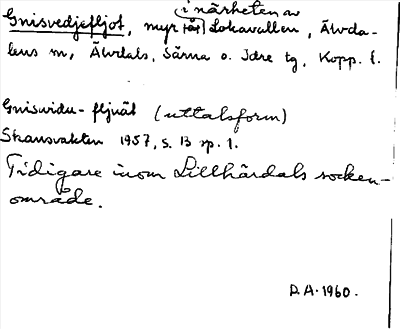 i närheten av
Gnisvedjefljot, myr Lokavallen, Älvda-
lens m, Älvdals, Särna o. Idre tg, Kopp. l.
Gnisvidu-fljuåt (uttalsform)
Skansvakten 1957, s. 13 sp. 1.
Tidigare inom Lillhärdals socken-
område.
D.A. 1960.